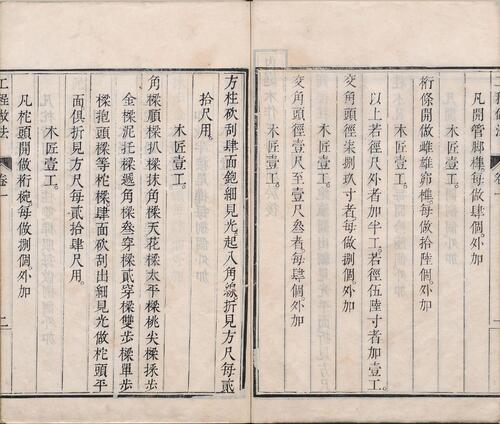 工程做法
卷一
凡開管脚榫每做肆個外加
木匠壹工。
桁條開做雌雄窮榫每做拾陸個外加
木匠壹工。
以上若徑尺外者加半工。若徑伍陸寸者加壹工。
交角頭徑柒捌玖寸者每做捌個外加
木匠壹工。
交角頭徑壹尺至壹尺叁者每肆個外加
木匠壹工。
方柱砍刮肆面鉋細見光起八角線折見方尺每貳
拾尺用。
木匠壹工。
角樑順樑扒樑抹角樑天花樑太平樑桃尖樑採步
金樑泥托樑遞角樑叁穿樑貳穿樑雙步樑單步
樑抱頭樑等柁樑肆面砍刮出細見光做柁頭平
面俱折見方尺每貳拾肆尺用。
木匠壹工。
凡柁頭開做桁椀每做捌個外加
工程做法
卷一
二